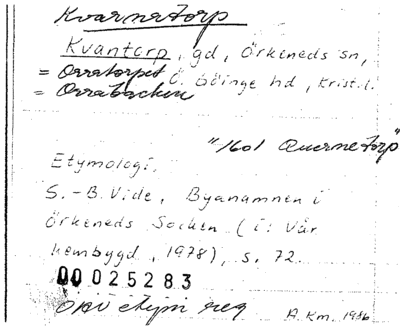 Kvarnatorp
Kvantorp, gd, Örkeneds sn,
= Orratorpet Ö. Göinge hd, Krist. l.
= Orrabacken
"1601 Quernetorp"
Etymologi.
S.-B. Vide, Byanamnen i
Örkeneds Socken (i: Vår
hembygd, 1978), s. 72.
00025283
etym reg
A. Km. 1986